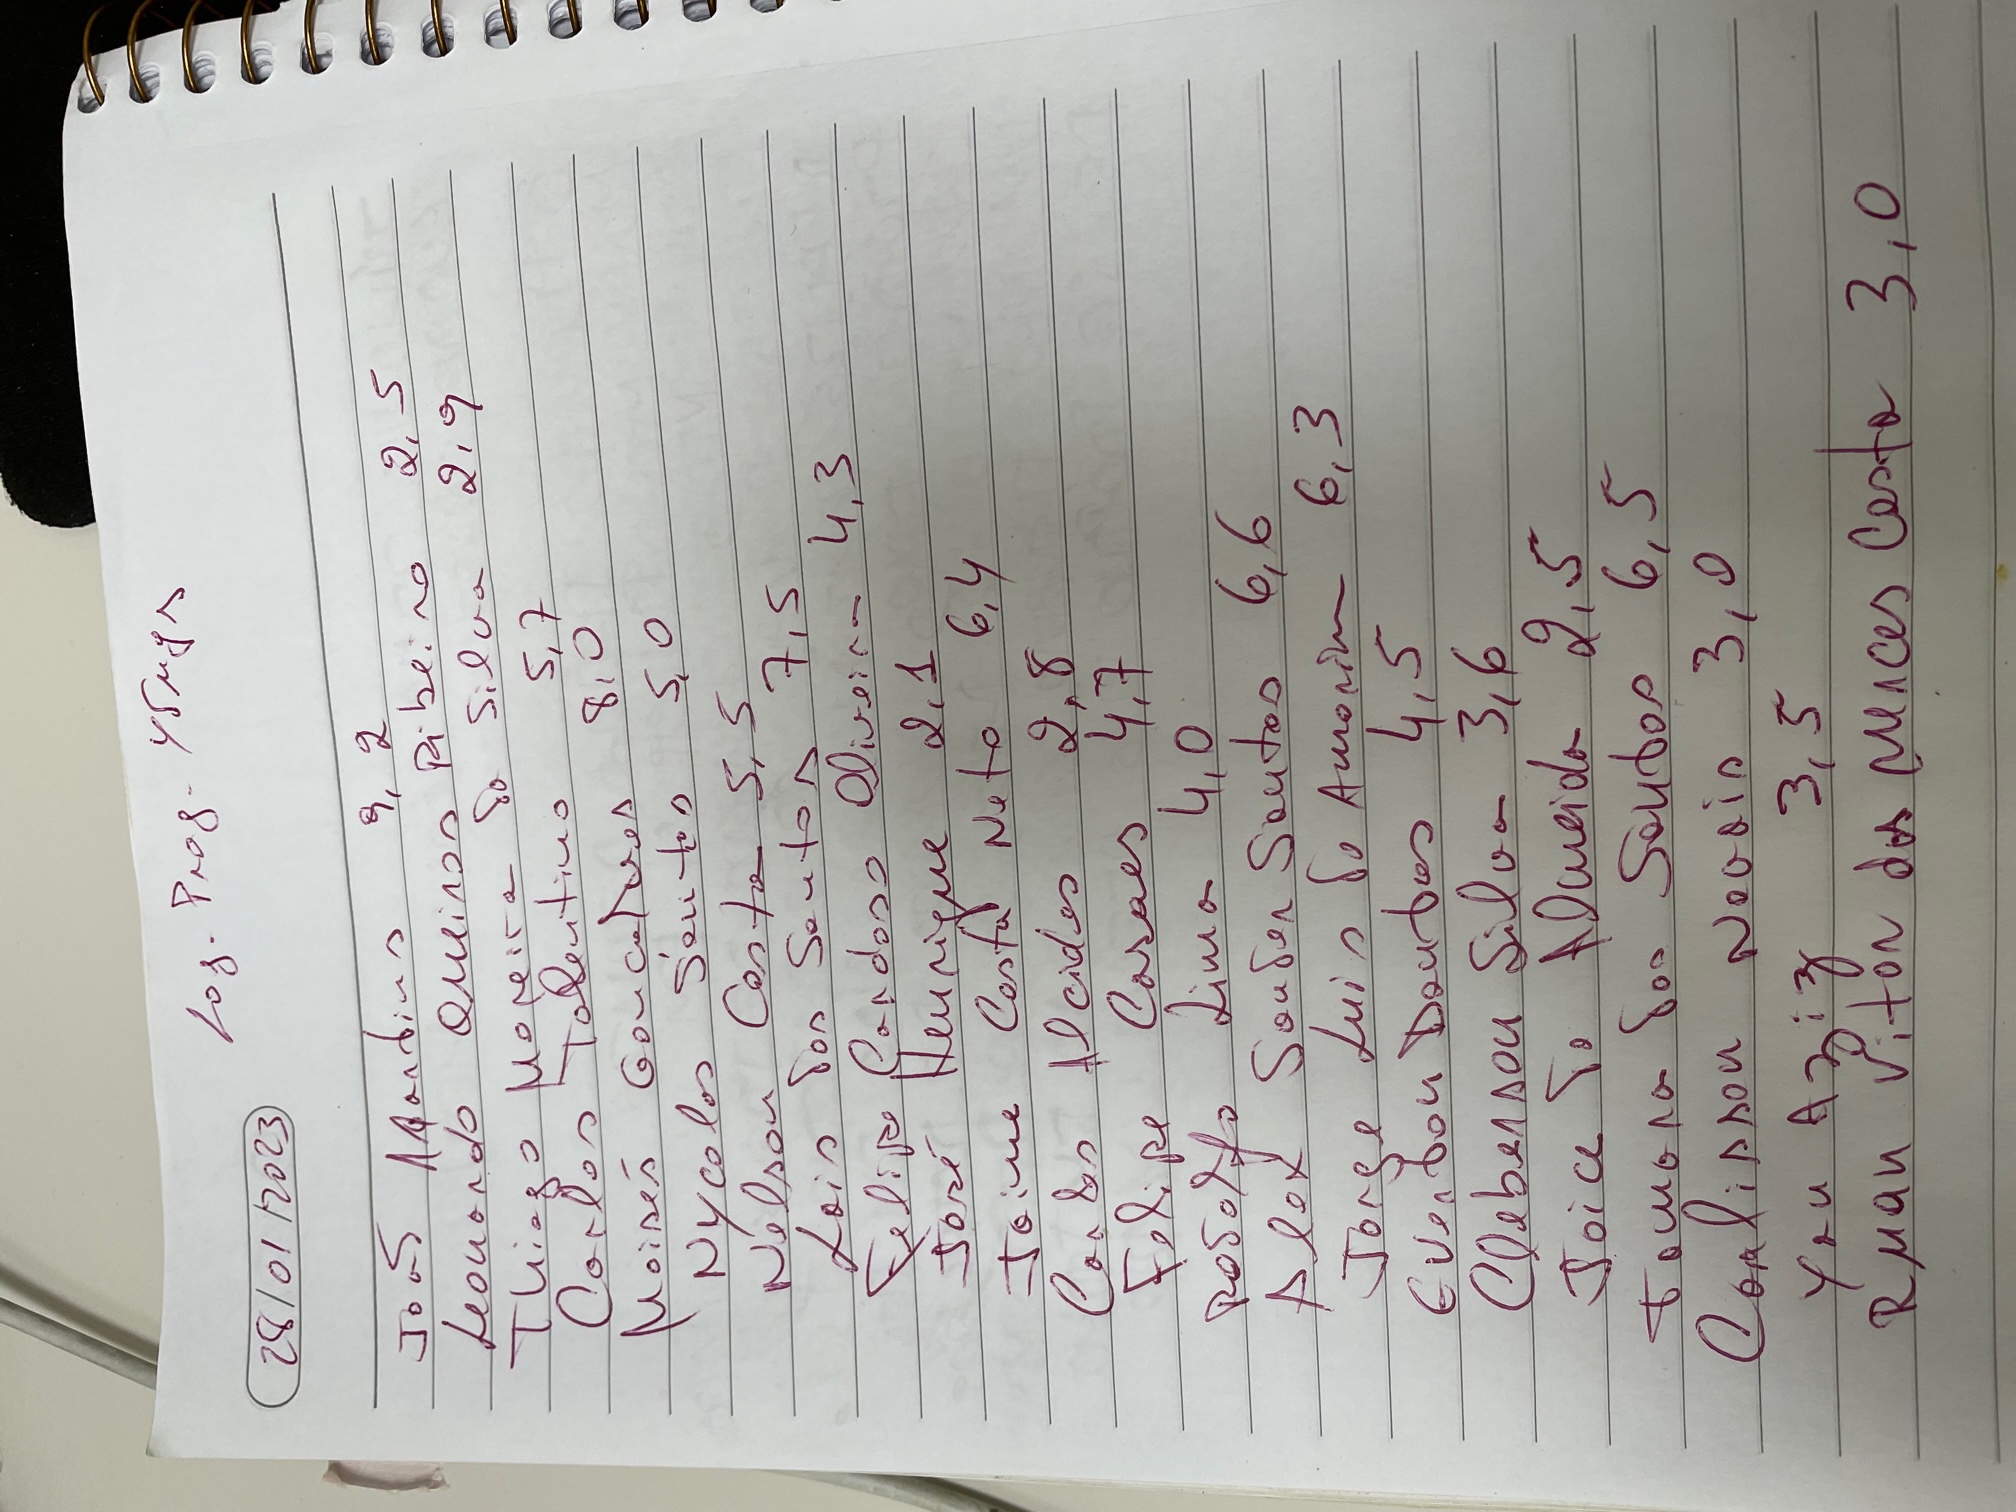 Log. Prog.
28/01/2023
João Martins 9,2
Leonardo Queiros Ribeiro 2,5
Thiago Moreira da Silva 2,9
Carlos Tolentino 5,7
Moisés Goncalves 8,0
Nycolas Santos 5,0
Nelson Costa 5,5
Lais dos Santos 7,5
Felipe Cardoso Oliveira 4,3
José Henrique 2,1
Jaime Costa Neto 6,4
Carlos Alcides 2,8
Felipe Casaes 4,7
Rodolfo Lima 4,0
Alex Sander Santos 6,6
Jorge Luis do Amorim 6,3
Everton Dantas 4,5
Cleberson Silva 3,6
Joice de Almeida 2,5
Tamara dos Santos 6,5
Carlisson Novais 3,0
Yan Aziz 3,5
Ruan Vitor das Merces Costa 3,0